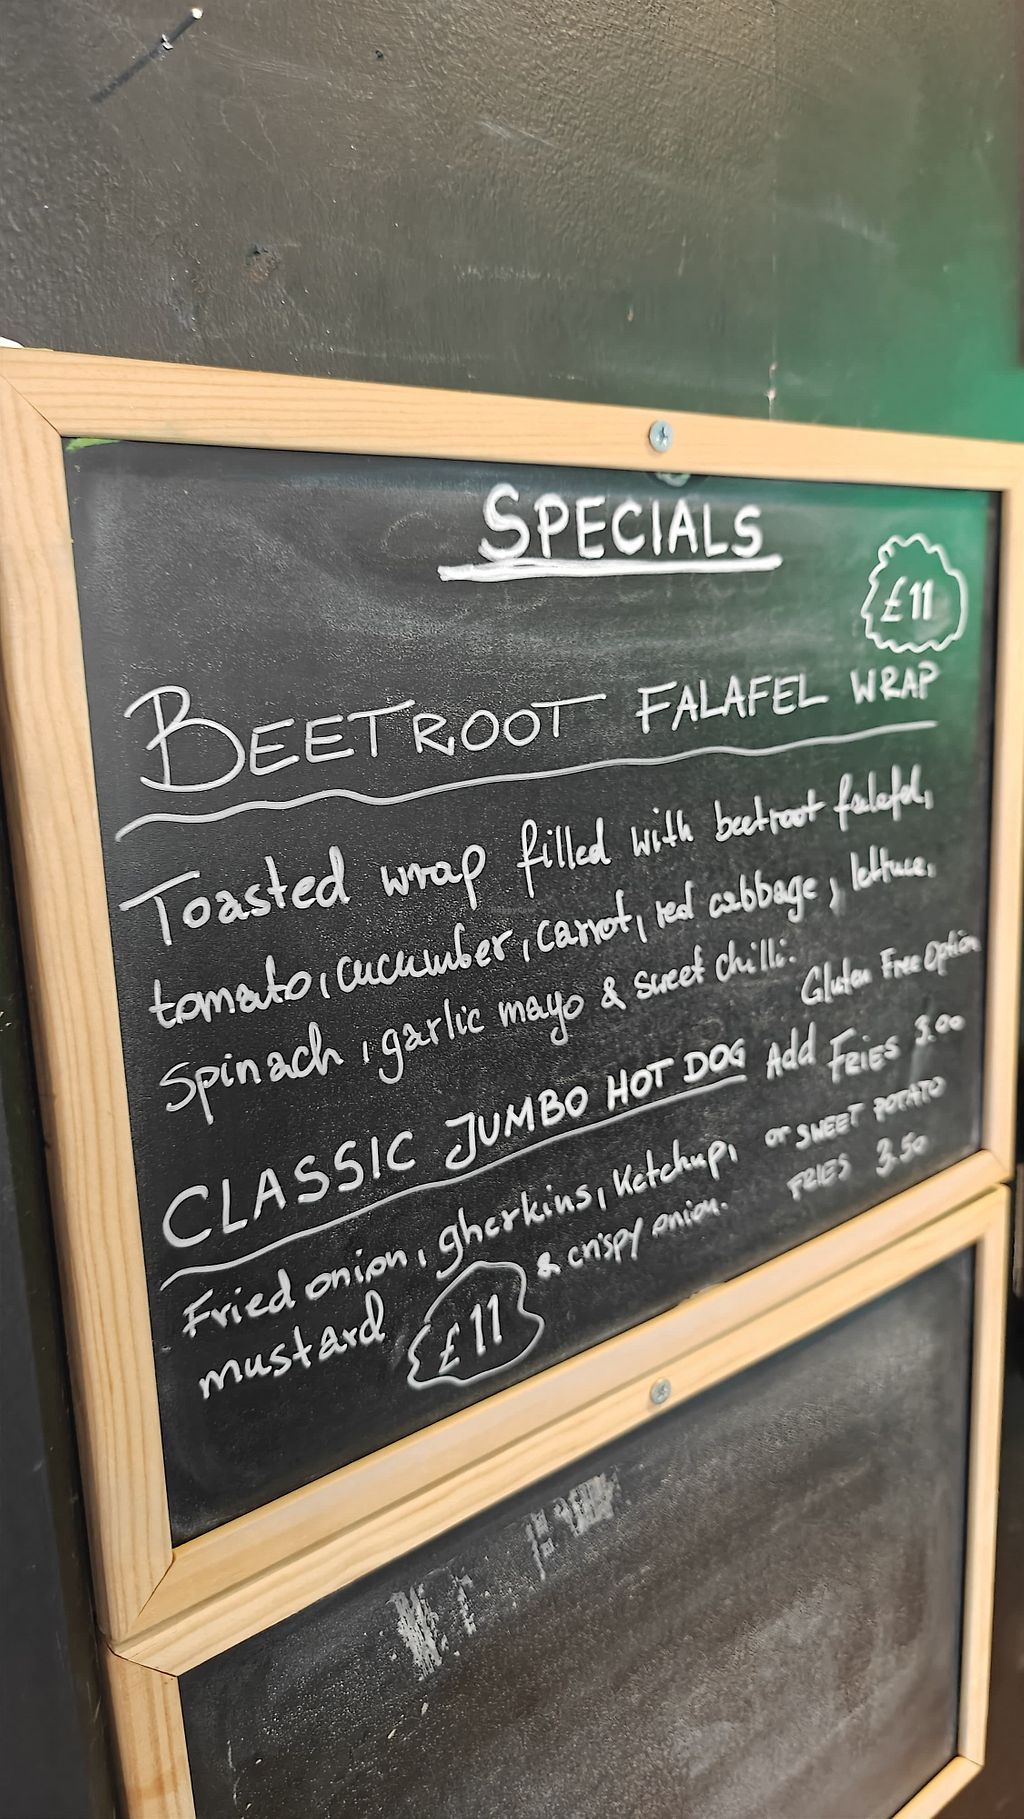 SPECIALS
£11
BEETROOT FALAFEL WRAP
Toasted wrap filled with beetroot falafel,
tomato, cucumber, carrot, red cabbage, lettuce,
spinach, garlic mayo & sweet chilli.
Gluten Free Option
CLASSIC JUMBO HOT DOG
Add FRIES 3.00
or SWEET POTATO
FRIES 3.50
Fried onion, gherkins, Ketchup,
mustard & crispy onion.
£11